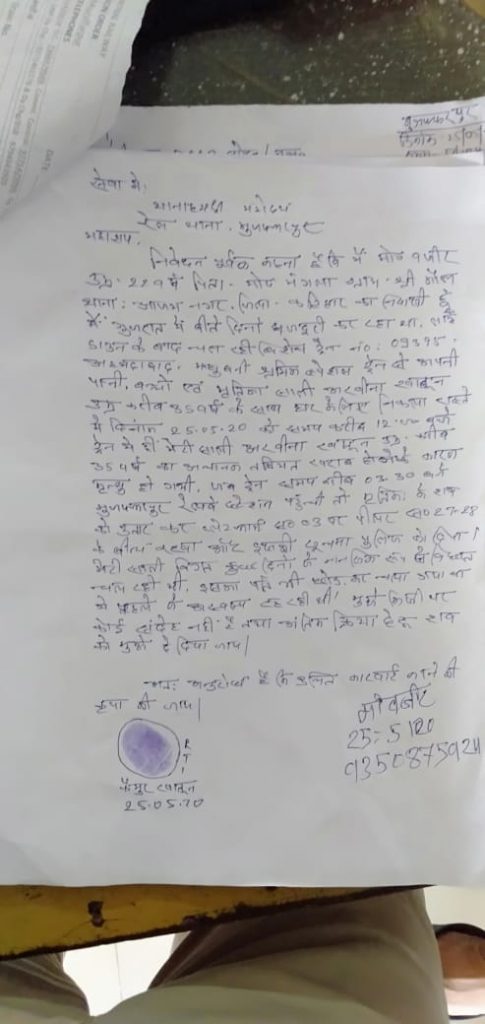 सेवा में,
थानाध्यक्ष महोदय
रेल थाना, मुजफ्फरपुर
महाशय,
निवेदन पूर्वक कहना है कि मैं मो० वजीर
उम्र- 22 वर्ष पिता- मो०
थाना: आजम नगर, जिला- कटिहार का निवासी हूँ
मैं गुजरात में बीते दिनों मजदूरी कर रहा था, लॉक
डाउन के बाद चल रही विशेष ट्रेन नं०: 09395
अहमदाबाद- मधुबनी श्रमिक स्पेशल ट्रेन से अपनी
पत्नी, बच्चों एवं मृतिका साली अरवीना खातून
उम्र करीब 35 वर्ष के साथ घर के लिए निकला रास्ते
में दिनांक 25.05.20 को समय करीब 12:00 बजे
ट्रेन में ही मेरी साली अरवीना खातून उम्र- करीब
35 वर्ष का अचानक तबियत खराब होने के कारण
मृत्यु हो गयी, जब ट्रेन समय करीब 03:30 बजे
मुजफ्फरपुर रेलवे स्टेशन पहुँची तो मृतिका के शव
को उतार कर प्लेटफार्म सं० 03 पर पीलर सं० 27-28
के बीच रखा और इसकी सूचना पुलिस को दिया।
मेरी साली विगत कुछ दिनों से मानसिक रूप से विक्षिप्त
चल रही थी, इसका पति भी छोड़ कर चला गया था
वो पहले से अस्वस्थ रह रही थी। मुझे किसी पर
कोई संदेह नहीं है तथा अंतिम क्रिया हेतु शव
को मुझे दे दिया जाय।
अतः अनुरोध है कि उचित कारवाई करने की
कृपा की जाय।
मो वजीर
25-5/20
9350875924
R
T
I
खातून
25.05.20